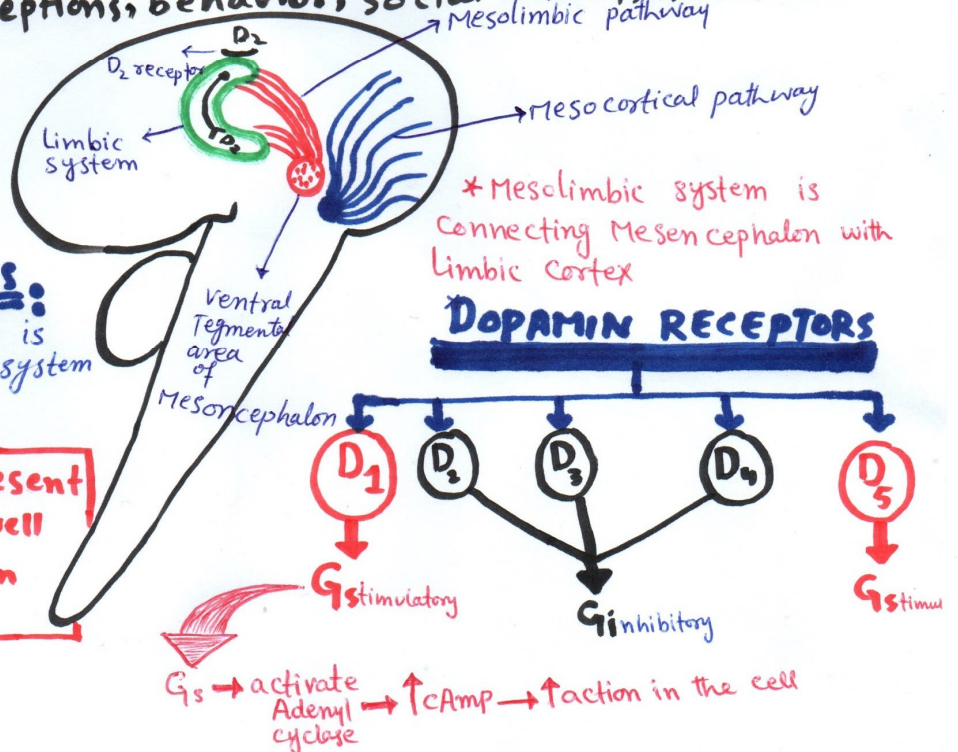 eptions, behavior, social
Mesolimbic pathway
D2
D2 receptor
Mesocortical pathway
Limbic
system
D2
* Mesolimbic system is
Connecting Mesencephalon with
Limbic Cortex
s:
is
system
Ventral
Tegmental
area
of
Mesoncephalon
*DOPAMIN RECEPTORS
D1 D2 D3 D4 D5
esent
ell
n
Gstimulatory
Ginhibitory
Gstimul
Gs → activate Adenyl cyclase → ↑cAmp → ↑action in the cell